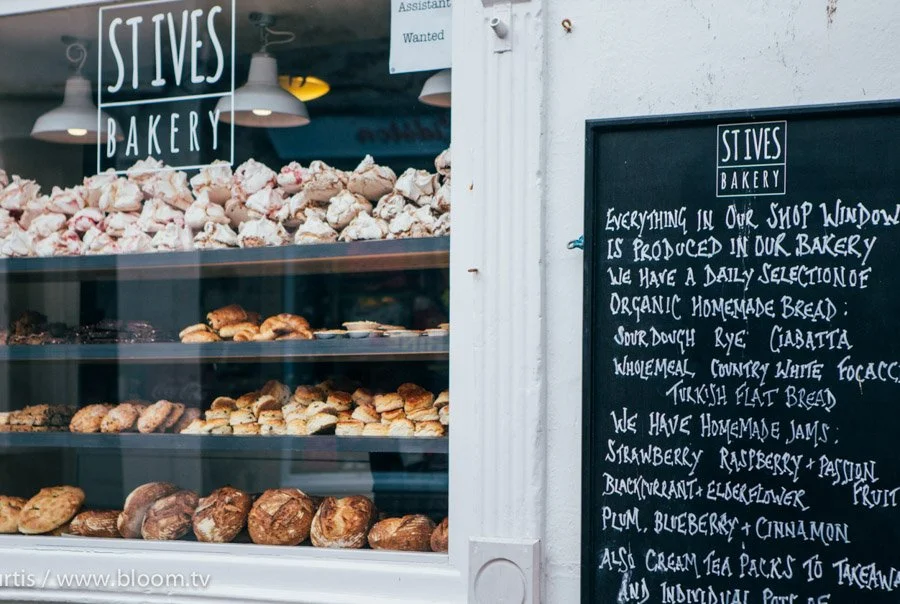 ST IVES
BAKERY
Assistant
Wanted
ST IVES
BAKERY
EVERYTHING IN OUR SHOP WINDOW
IS PRODUCED IN OUR BAKERY
WE HAVE A DAILY SELECTION OF
ORGANIC HOMEMADE BREAD:
SOURDOUGH RYE CIABATTA
WHOLEMEAL COUNTRY WHITE FOCACC
TURKISH FLAT BREAD
WE HAVE HOMEMADE JAMS:
STRAWBERRY RASPBERRY + PASSION
FRUIT
BLACKCURRANT + ELDERFLOWER
PLUM, BLUEBERRY + CINNAMON
ALSO CREAM TEA PACKS TO TAKEAWA
AND INDIVIDUAL POTS OF
urtis / www.bloom.tv